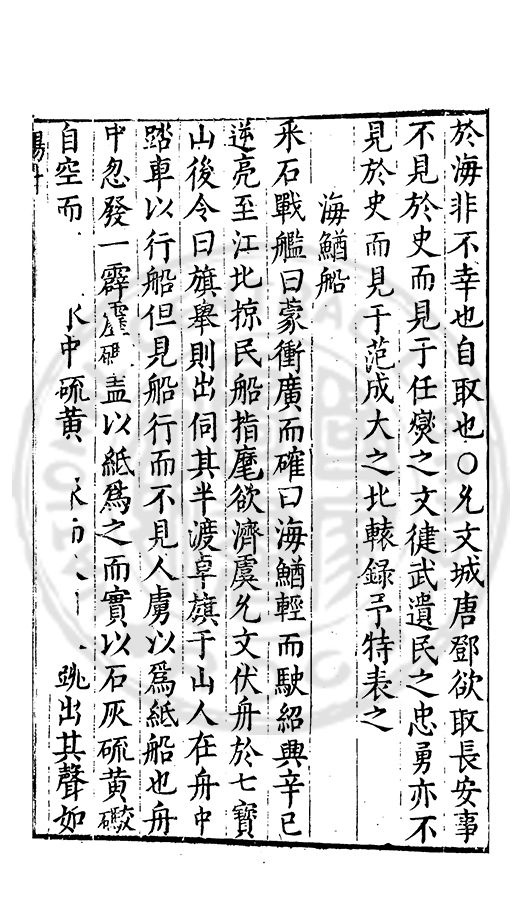 於海非不幸也自取也〇允文城唐鄧欲取長安事
不見於史而見于任燮之文徤武遺民之忠勇亦不
見於史而見于范成大之北轅錄予特表之
海鰌船
釆石戰艦曰蒙衝廣而確曰海鰌輕而駛紹興辛巳
逆亮至江北掠民船指麾欲濟虞允文伏舟於七寶
山後令曰旗舉則出伺其半渡卓旗于山人在舟中
踏車以行船但見船行而不見人虜以爲紙船也舟
中忽發一霹靂礮盖以紙爲之而實以石灰硫黃礮
自空而中硫黃跳出其聲如